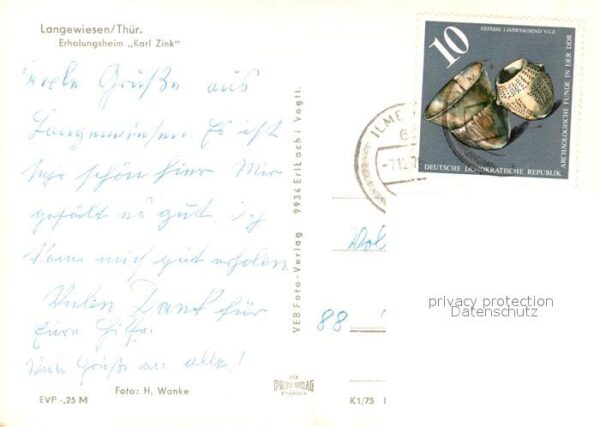 Langewiesen/Thür.
Erholungsheim „Karl Zink"
viele Grüße aus
Langewiesen Es ist
sehr schön hier Mir
gefält es gut. ich
kann mich gut erholen
Vielen Dank für
Eure Hilfe.
Viele Grüße an alle!
Foto: H. Wanke
EVP -,25 M
VEB Foto-Verlag 9934 Erlbach i. Vogtl.
K1/75
10
GEFÄSSE 3. JAHRTAUSEND V.U.Z.
ARCHÄOLOGISCHE FUNDE IN DER DDR
DEUTSCHE DEMOKRATISCHE REPUBLIK
ILME
88
privacy protection
Datenschutz